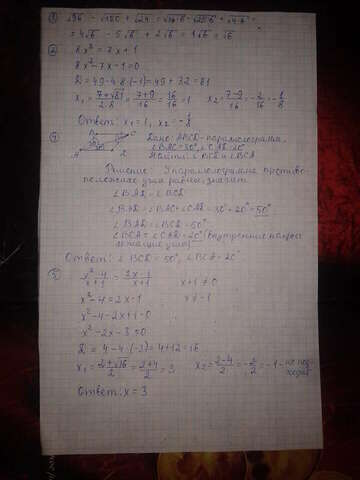 ③ √96 - √150 + √24 = √16·6 - √25·6 + √4·6 =
= 4√6 - 5√6 + 2√6 = 1√6 = √6
② 8x² = 7x + 1
8x² - 7x - 1 = 0
D = 49 - 4·8·(-1) = 49 + 32 = 81
x₁ = (7+√81)/(2·8) = (7+9)/16 = 16/16 = 1 x₂ = (7-9)/16 = -2/16 = -1/8
Ответ: x₁ = 1, x₂ = -1/8
④ Дано: ABCD - параллелограмм,
∠BAC = 30°, ∠CAD = 20°
Найти: ∠BCD и ∠BCA
Решение У параллелограмма противо-
положные углы равны, значит
∠BAD = ∠BCD
∠BAD = ∠BAC + ∠CAD = 30° + 20° = 50°
∠BAD = ∠BCD = 50°
∠BCA = ∠CAD = 20° (внутренние накрест
лежащие углы)
Ответ: ∠BCD = 50°, ∠BCA = 20°
⑤ (x²-4)/(x+1) = (2x-1)/(x+1) x+1 ≠ 0
x² - 4 = 2x - 1 x ≠ -1
x² - 4 - 2x + 1 = 0
x² - 2x - 3 = 0
D = 4 - 4·(-3) = 4 + 12 = 16
x₁ = (2+√16)/2 = (2+4)/2 = 3 x₂ = (2-4)/2 = -2/2 = -1 - не под-
ходит
Ответ: x = 3